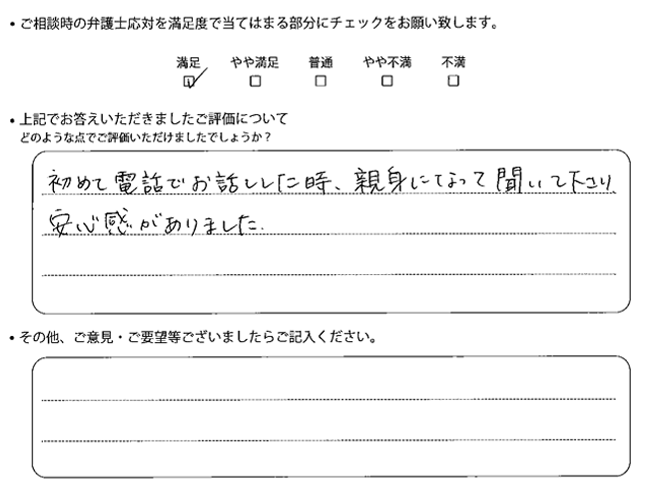 • ご相談時の弁護士応対を満足度で当てはまる部分にチェックをお願い致します。
満足 やや満足 普通 やや不満 不満
• 上記でお答えいただきましたご評価について
どのような点でご評価いただけましたでしょうか？
初めて電話でお話しした時、親身になって聞いて下さり
安心感がありました.
• その他、ご意見・ご要望等ございましたらご記入ください。